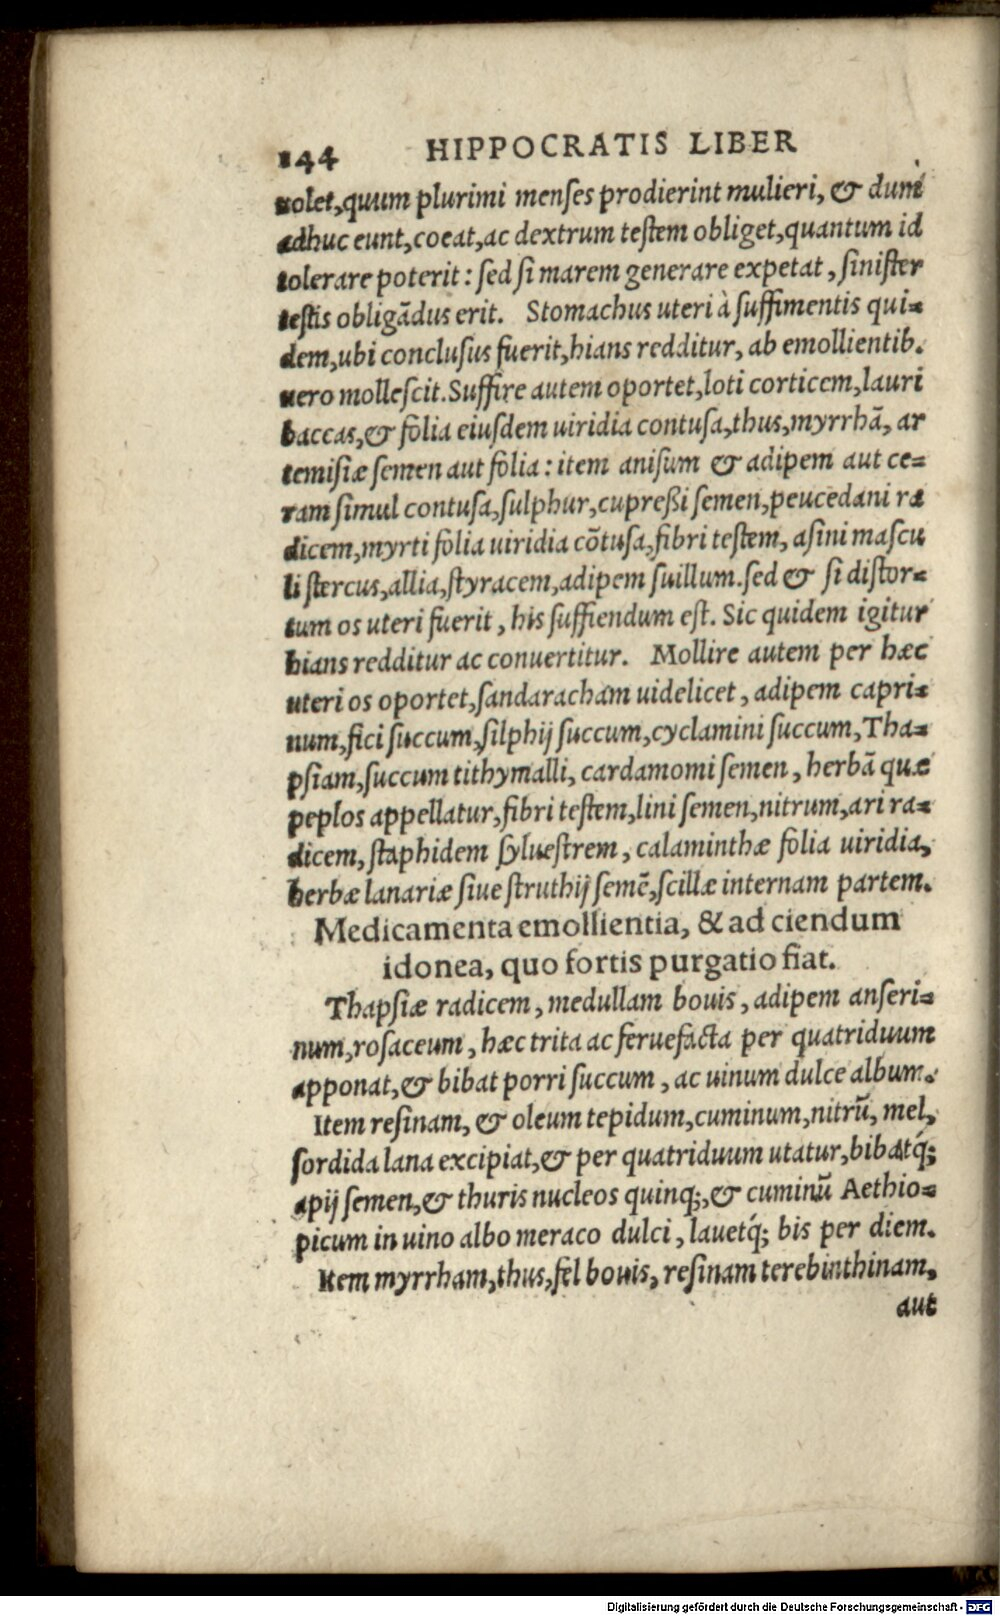 144 HIPPOCRATIS LIBER
uolet,quum plurimi menſes prodierint mulieri, & dum
adhuc eunt,coeat,ac dextrum teſtem obliget,quantum id
tolerare poterit: ſed ſi marem generare expetat, ſiniſter
teſtis obligādus erit. Stomachus uteri à ſuffimentis qui=
dem,ubi concluſus fuerit,hians redditur, ab emollientib.
uero molleſcit.Suffire autem oportet,loti corticem,lauri
baccas,& folia eiuſdem uiridia contuſa,thus,myrrhā, ar
temiſiæ ſemen aut folia: item aniſum & adipem aut ce=
ram ſimul contuſa,ſulphur,cupreßi ſemen,peucedani ra
dicem,myrti folia uiridia cōtuſa,fibri teſtem, aſini maſcu
li ſtercus,allia,ſtyracem,adipem ſuillum.ſed & ſi diſtor=
tum os uteri fuerit, his ſuffiendum eſt. Sic quidem igitur
hians redditur ac conuertitur. Mollire autem per hæc
uteri os oportet,ſandaracham uidelicet, adipem capri=
num,fici ſuccum,ſilphij ſuccum,cyclamini ſuccum,Tha=
pſiam,ſuccum tithymalli, cardamomi ſemen, herbā quæ
peplos appellatur,fibri teſtem,lini ſemen,nitrum,ari ra=
dicem, ſtaphidem ſylueſtrem, calaminthæ folia uiridia,
herbæ lanariæ ſiue ſtruthij ſemē,ſcillæ internam partem.
Medicamenta emollientia, & ad ciendum
idonea, quo fortis purgatio fiat.
Thapſiæ radicem, medullam bouis, adipem anſeri=
num,roſaceum, hæc trita ac feruefacta per quatriduum
apponat,& bibat porri ſuccum, ac uinum dulce album.
Item reſinam, & oleum tepidum,cuminum,nitrū, mel,
ſordida lana excipiat,& per quatriduum utatur,bibatq́;
apij ſemen,& thuris nucleos quinq;,& cuminū Aethio=
picum in uino albo meraco dulci, lauetq́; bis per diem.
Item myrrham,thus,fel bouis, reſinam terebinthinam,
aut
Digitalisierung gefördert durch die Deutsche Forschungsgemeinschaft - DFG